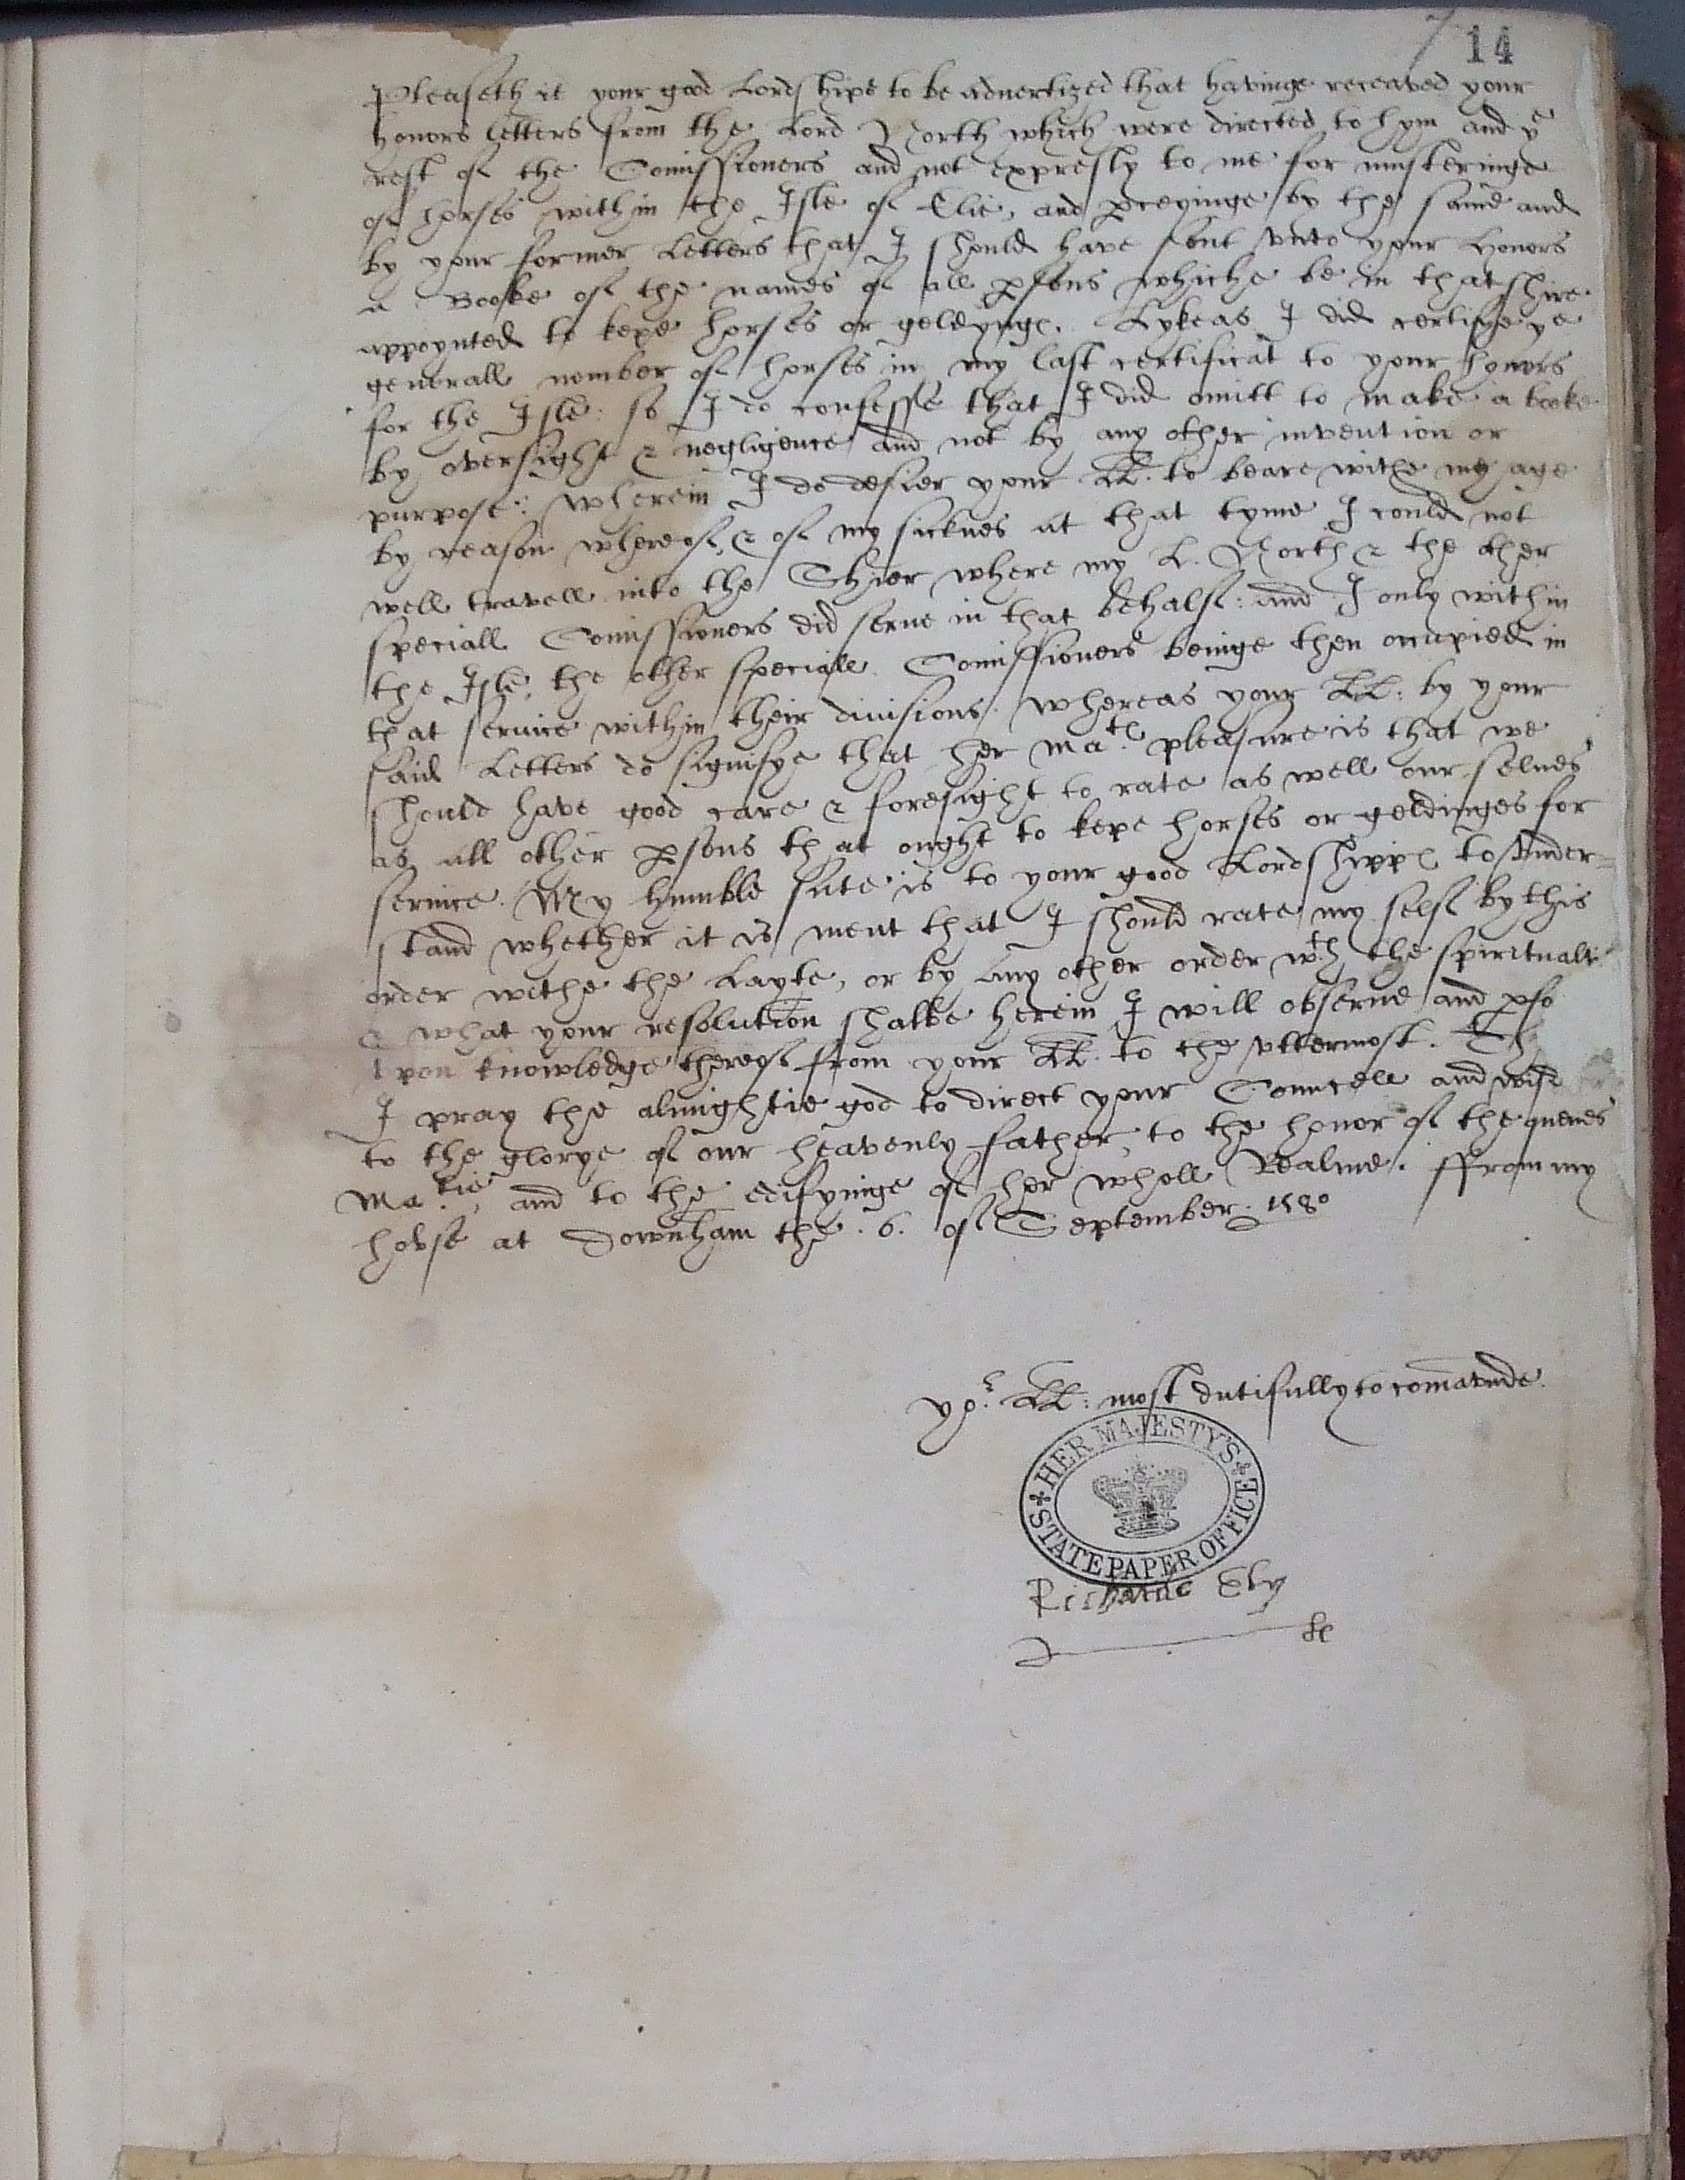 14
Pleaseth it your good Lordshipe to be aduertized that havinge receaved your
honors letters from the Lord North which were directed to hym and ye
rest of the Comissioners and not expresly to me for musteringe
of horses within the Isle of Elie, and pceyinge by the same and
by your former Letters that I should have sent vnto your Honors
a Booke of the names of all psons whiche be in that shire
appoynted to kepe horses or geldynge. Lykeas I did certifye ye
generall nomber of horses in my last certificat to your honors
for the Isle: so I do confesse that I did omitt to make a booke
by oversight & negligence and not by any other invention or
purpose: wherein I do desier your LL: to beare withe my age
by reason whereof, & of my sicknes at that tyme I could not
well travell into the Shier where my L. North & the other
speciall Comissioners did serue in that behalf: and I only within
the Isle, the other speciall Comissioners beinge then occupied in
that seruice within their diuisions. Whereas your LL: by your
said Letters do signifye that her Matie pleasure is that we
should have good care & foresight to rate as well our selues
as all other psons that ought to kepe horses or geldinges for
seruice. My humble sute is to your good Lordshippe to vnder=
stand whether it is ment that I should rate my self by this
order withe the Layte, or by any other order wth the spiritualt
& what your resolution shalbe herein I will observe and pfo
vpon knowledge thereof from your LL. to the vttermost. Th
I pray the almightie god to direct your Councell and wisd
to the glorye of our heavenly father, to the honor of the quenes
Matie, and to the edifyinge of her wholl Realme. ffrom my
hovse at Downham the .6. of September. 1580
yor. LL: most dutifully to comavnde.
HER MAJESTY'S
STATE PAPER OFFICE
Richarde Ely